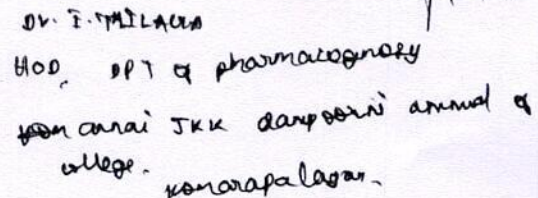 Dr. I. THILAGA
HOD, DPT of pharmacognosy
annai JKK sampoorni ammal of
college.
komarapalayam.